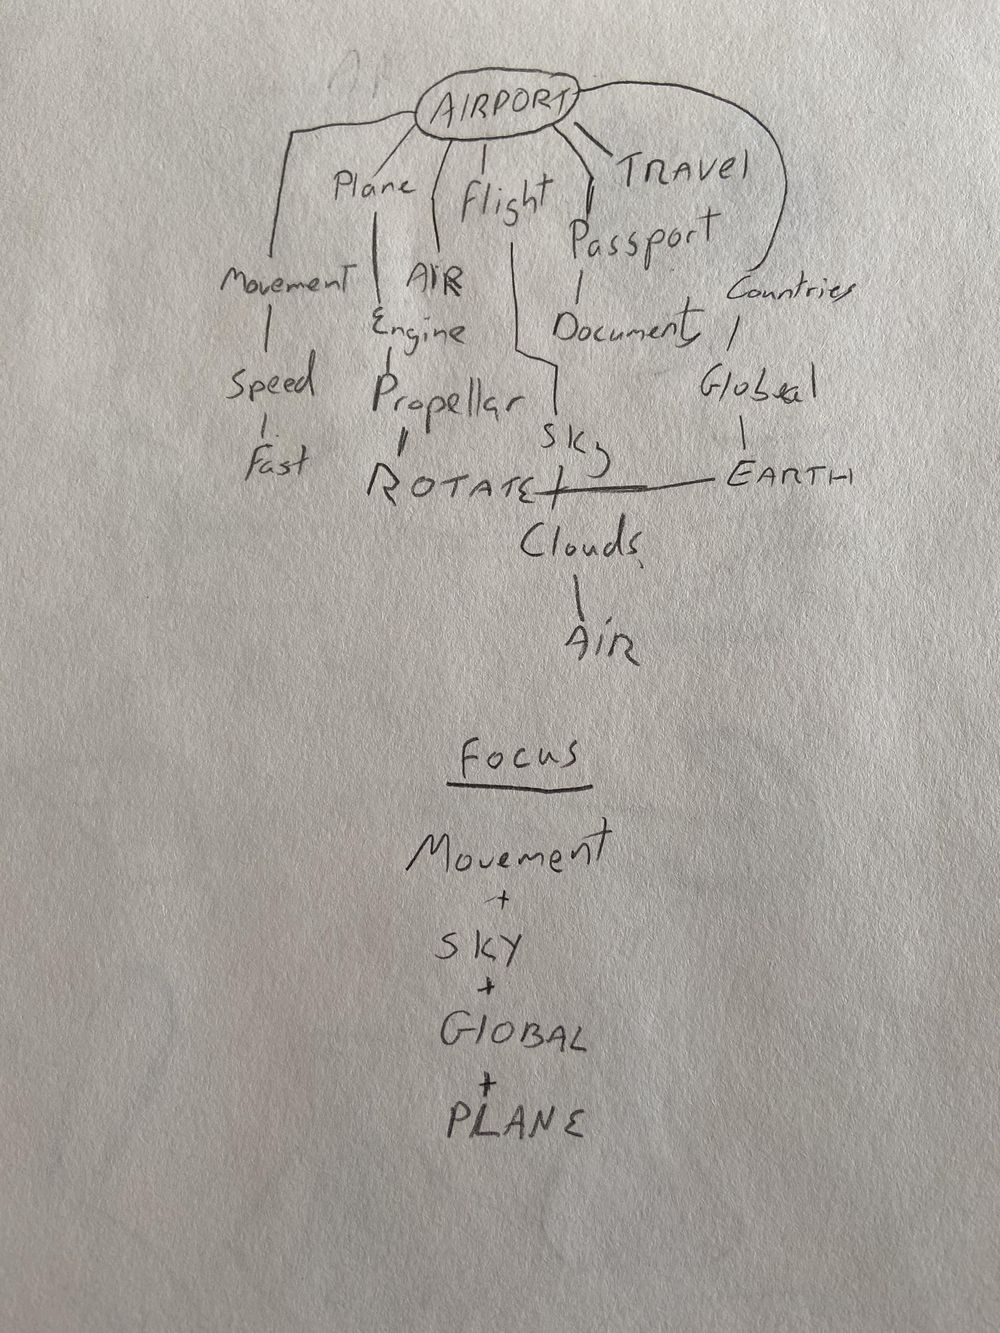 AIRPORT
Plane
Flight
TRAVEl
Passport
Movement
AIR
Countries
Engine
Document
Speed
Propellar
Global
Sky
Fast
ROTATE
EARTH
Clouds
AiR
Focus
Movement
+
SKY
+
GlOBAL
+
PLANE